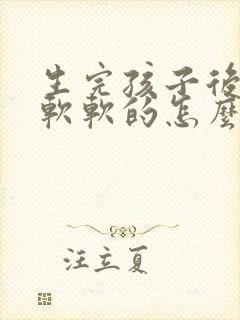 生完孩子後
軟軟的怎麼
汪立夏